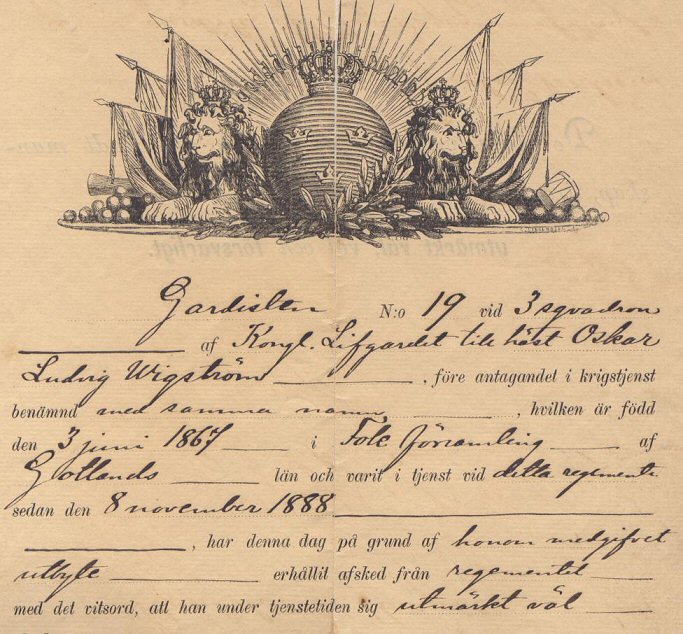 Gardisten N:o 19 vid 3 sqvadron
af Kongl. Lifgardet till häst Oskar
Ludvig Wigström , före antagandet i krigstjenst
benämnd med samma namn , hvilken är född
den 3 juni 1867 i Fole församling af
Gotlands län och varit i tjenst vid detta regemente
sedan den 8 november 1888
, har denna dag på grund af honom medgifvet
utbyte erhållit afsked från regementet
med det vitsord, att han under tjenstetiden sig utmärkt väl